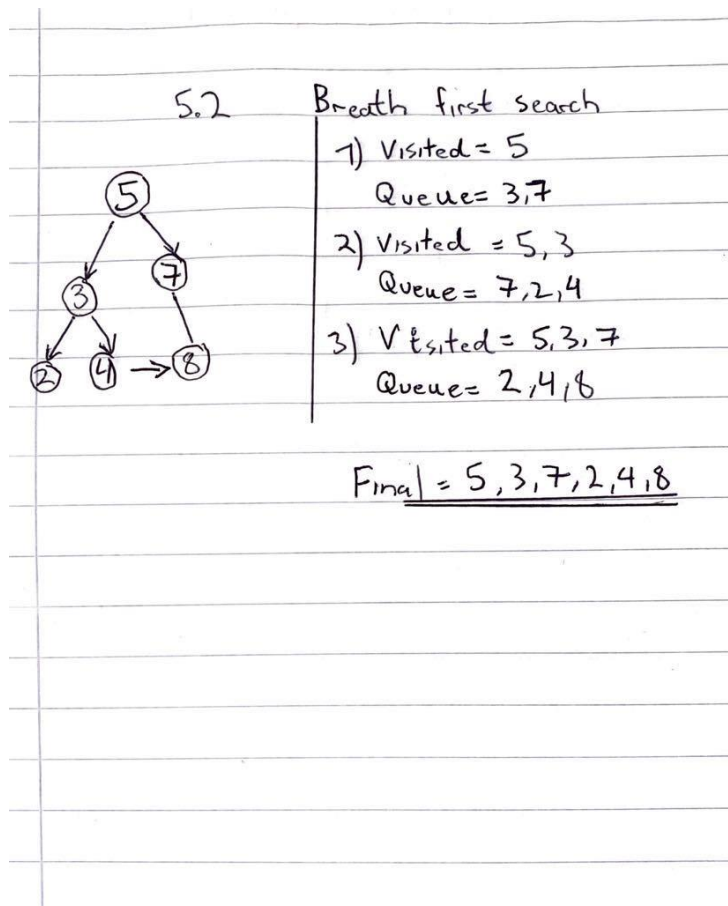 5.2 Breath first search
1) Visited = 5
Queue= 3,7
2) Visited = 5,3
Queue = 7,2,4
3) Visited = 5,3,7
Queue= 2,4,8
Final = 5,3,7,2,4,8
5
3
7
2
4
8